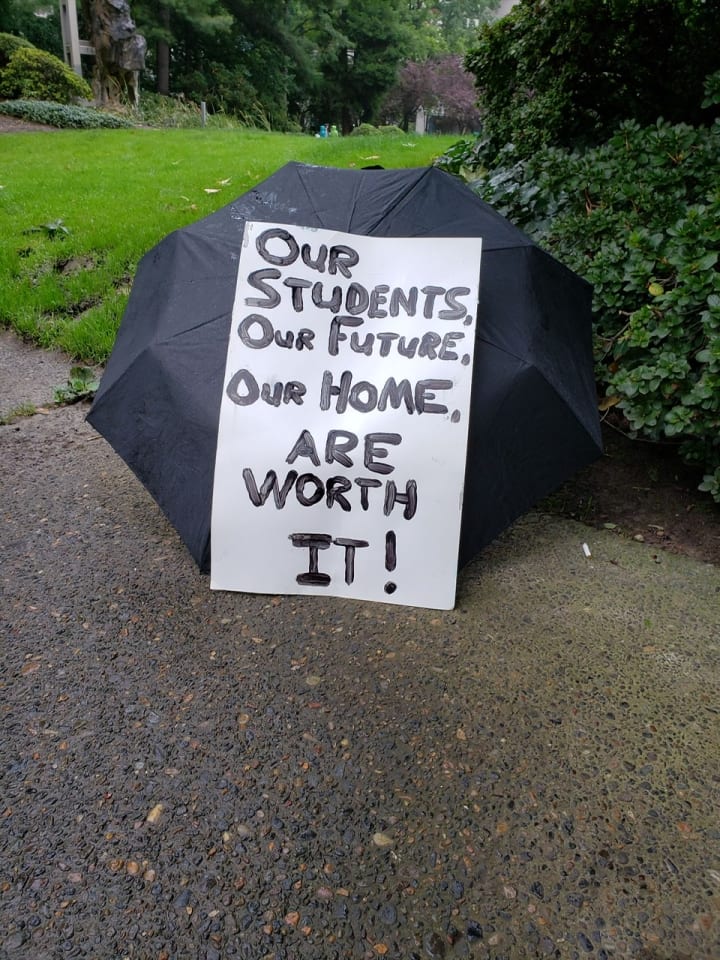 OUR
STUDENTS,
OUR FUTURE,
OUR HOME,
ARE
WORTH
IT!